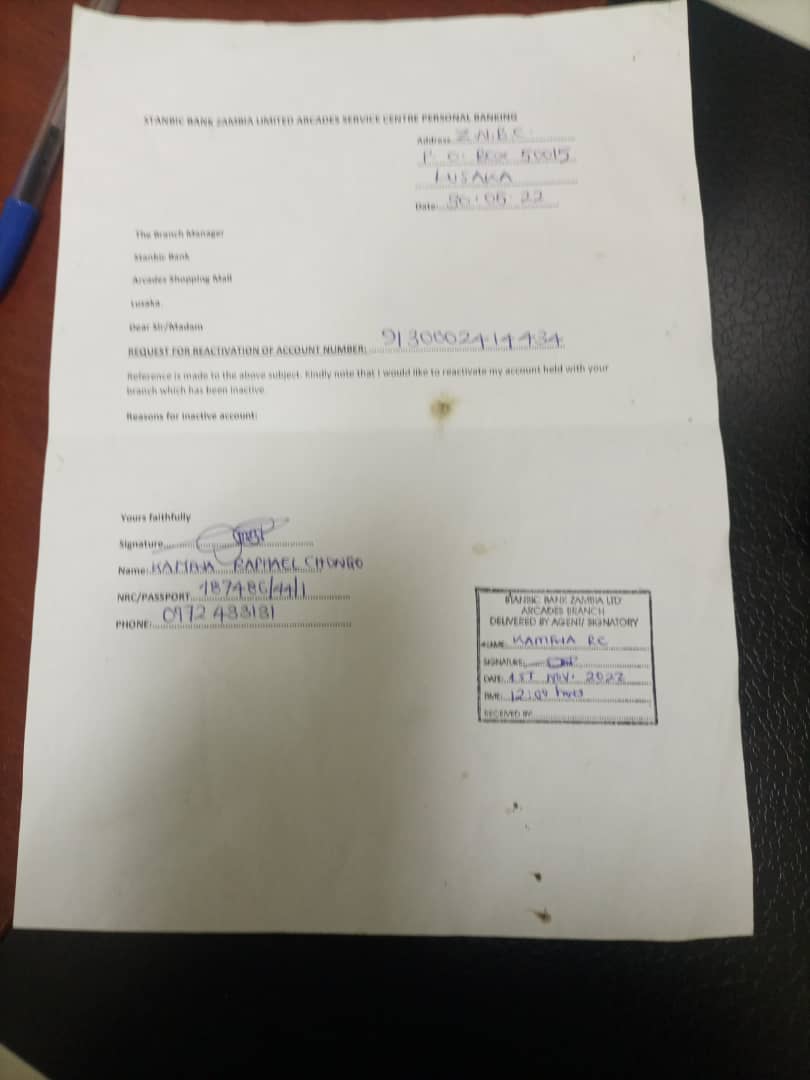 STANBIC BANK ZAMBIA LIMITED ARCADES SERVICE CENTRE PERSONAL BANKING
Address Z.N.B.C.
P. O. BOX 50015
LUSAKA
Date: 30.05.22
The Branch Manager
Stanbic Bank
Arcades Shopping Mall
Lusaka.
Dear Sir/Madam
REQUEST FOR REACTIVATION OF ACCOUNT NUMBER: 9130002414434
Reference is made to the above subject. Kindly note that I would like to reactivate my account held with your
branch which has been inactive.
Reasons for inactive account:
Yours faithfully
Signature
Name: RAPHAEL CHONGO
NRC/PASSPORT 187486/44/1
PHONE: 0972 433131
STANBIC BANK ZAMBIA LTD
ARCADES BRANCH
DELIVERED BY AGENT/ SIGNATORY
NAME RC
SIGNATURE
DATE: 1ST NOV. 2022
TIME: 12:09 hours
RECEIVED BY